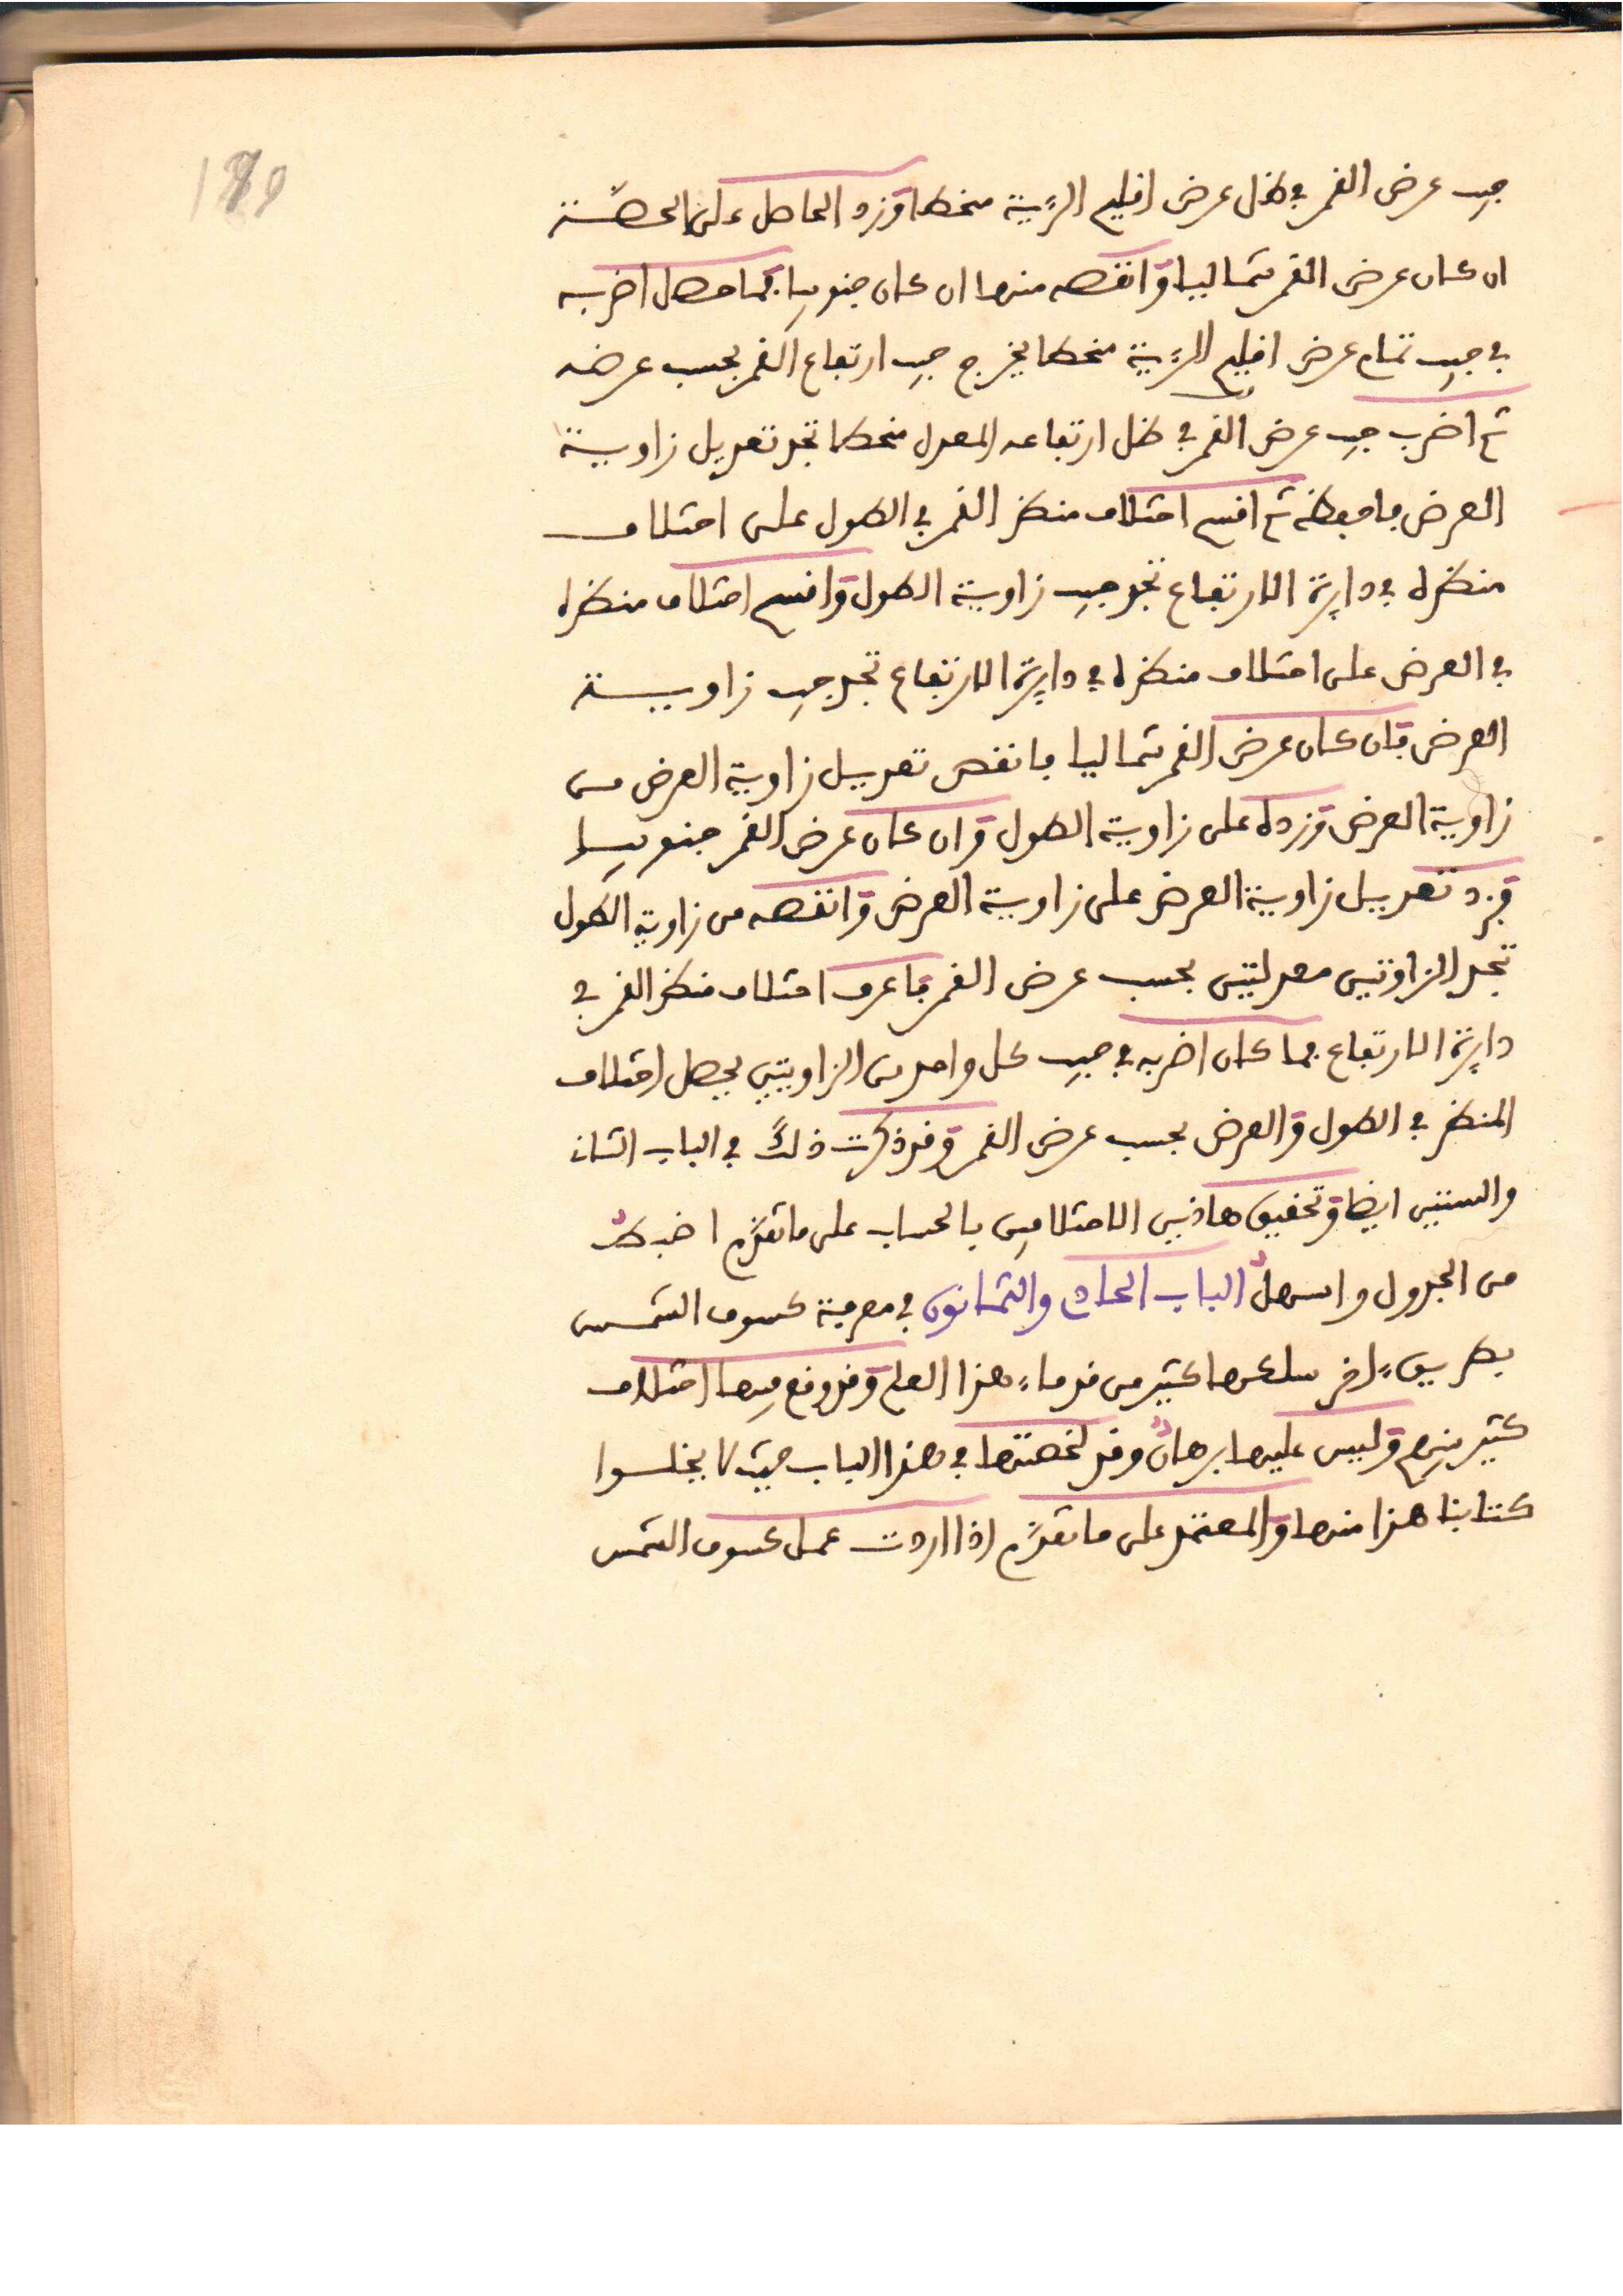 189
جيب عرض القمر في ظل عرض اقليم الرءية منحطا وزد الحاصل على الحصّة
ان كان عرض القمر شماليا وانقصه منها ان كان جنوبيا فما حصل اضربه
في جيب تمام عرض اقليم الرءية منحطا يخرج جيب ارتفاع القمر بحسب عرضه
ثم اضرب جيب عرض القمر في ظل ارتفاعه المعدل منحطا تجد تعديل زاوية
العرض فاحفظه ثم اقسم اختلاف منظر القمر في الطول على اختلاف
منظره في دايرة الارتفاع تجد جيب زاوية الطول واقسم اختلاف منظره
في العرض على اختلاف منظره في دايرة الارتفاع تجد جيب زاوية
العرض فان كان عرض القمر شماليا فانقص تعديل زاوية العرض من
زاوية العرض وزده على زاوية الطول وان كان عرض القمر جنوبيا
فزد تعديل زاوية العرض على زاوية العرض وانقصه من زاوية الطول
تجد الزاوتين معدلتين بحسب عرض القمر فاعرف اختلاف منظر القمر في
دايرة الارتفاع فما كان اضربه في جيب كل واحد من الزاويتين يحصل اختلاف
المنظر في الطول والعرض بحسب عرض القمر وقد ذكرت ذلك في الباب الثان
والستين ايضا وتحقيق هاذين الاختلافين بالحساب على ما تقدّم اضبط
من الجدول واسهل الباب الحادي والثمانون في معرفة كسوف الشمس
بطريق ءاخر سلكها كثير من قدماء هذا العلم وقد وقع فيها اختلاف
كثير منهم وليس عليها برهان وقد لخصتها في هذا الباب حيث لا يخلسوا
كتابنا هذا منها والمعتمد على ما تقدّم اذا اردت عمل كسوف الشمس